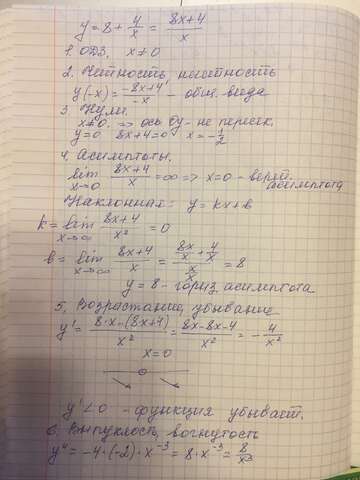 y = 8 + 4/x = (8x+4)/x
1. ОДЗ. x ≠ 0
2. Четность, нечетность
y(-x) = (-8x+4)/(-x) - общ. вида
3. Нули.
x ≠ 0. => ось Oy - не перес.
y = 0 8x+4=0 x = -1/2
4. Асимптоты.
lim x→0 (8x+4)/x = ∞ => x=0 - верт. асимптота
Наклонная: y = kx+b
k = lim x→∞ (8x+4)/x² = 0
b = lim x→∞ (8x+4)/x = (8x/x + 4/x)/(x/x) = 8
y = 8 - гориз. асимптота
5. Возрастание, убывание
y' = (8·x-(8x+4))/x² = (8x-8x-4)/x² = -4/x²
x=0
y' < 0 - функция убывает.
6. Выпуклость, вогнутость
y'' = -4·(-2)·x⁻³ = 8·x⁻³ = 8/x³